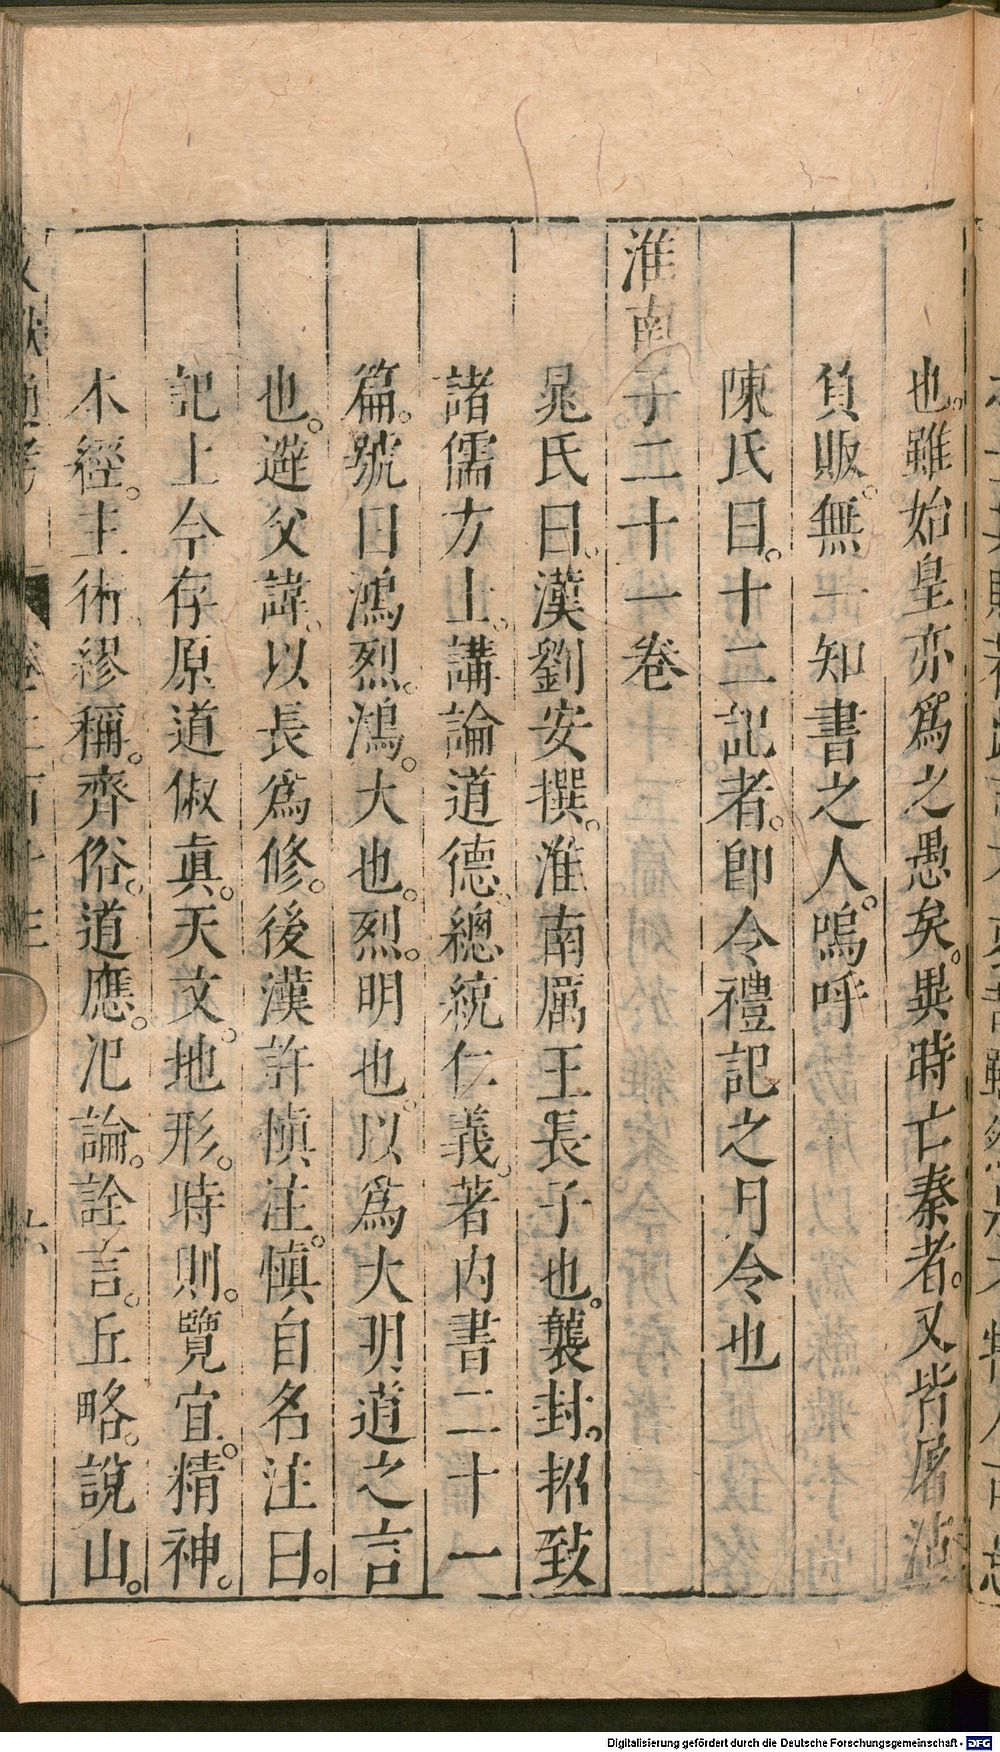 也。雖始皇亦爲之愚矣。異時亡秦者。又皆屠沽
負販。無一知書之人。嗚呼
陳氏曰。十二記者。卽今禮記之月令也
淮南子二十一卷
晁氏曰。漢劉安撰。淮南厲王長子也。襲封。招致
諸儒方士。講論道德。總統仁義。著內書二十一
篇。號曰鴻烈。鴻。大也。烈。明也。以爲大明道之言
也。避父諱。以長爲修。後漢許慎注。慎自名注曰。
記上今存原道俶真。天文。地形。時則。覽宜。精神。
本經。主術。繆稱。齊俗。道應。氾論。詮言。丘略。說山。
Digitalisierung gefördert durch die Deutsche Forschungsgemeinschaft - DFG